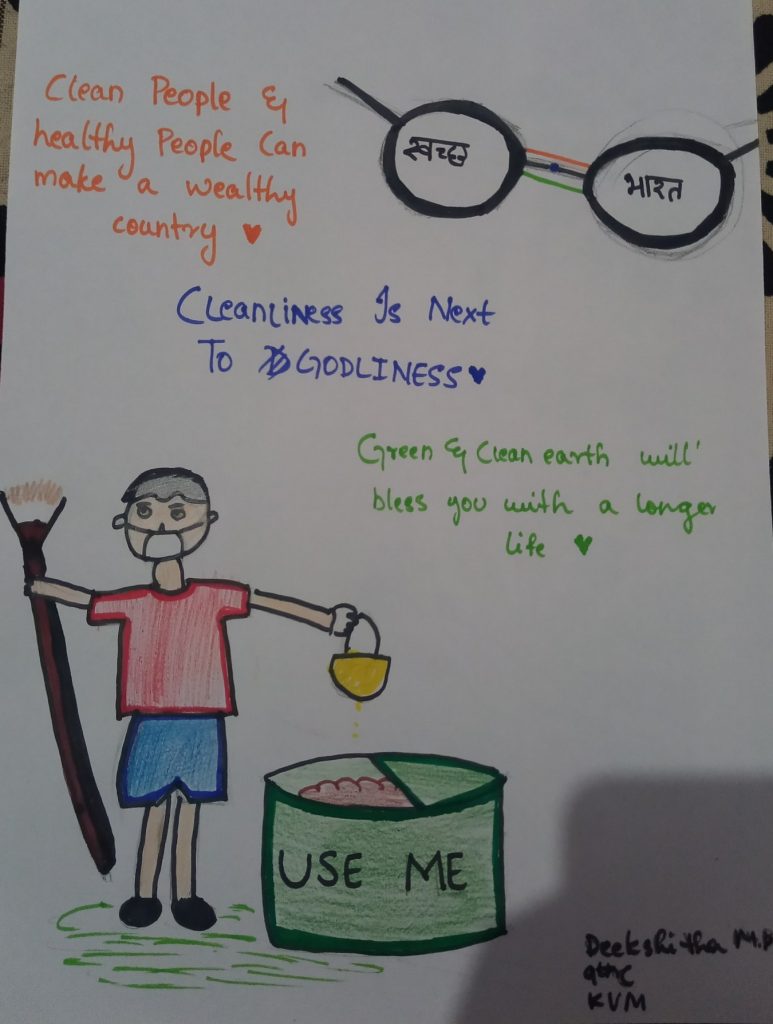 Clean People &
healthy People Can
make a wealthy
country ♥
स्वच्छ
भारत
CLeanLiNess Is Next
To GODLINESS ♥
Green & Clean earth will'
bless you with a longer
life ♥
USE ME
Deekshitha M.D
9th C
KVM